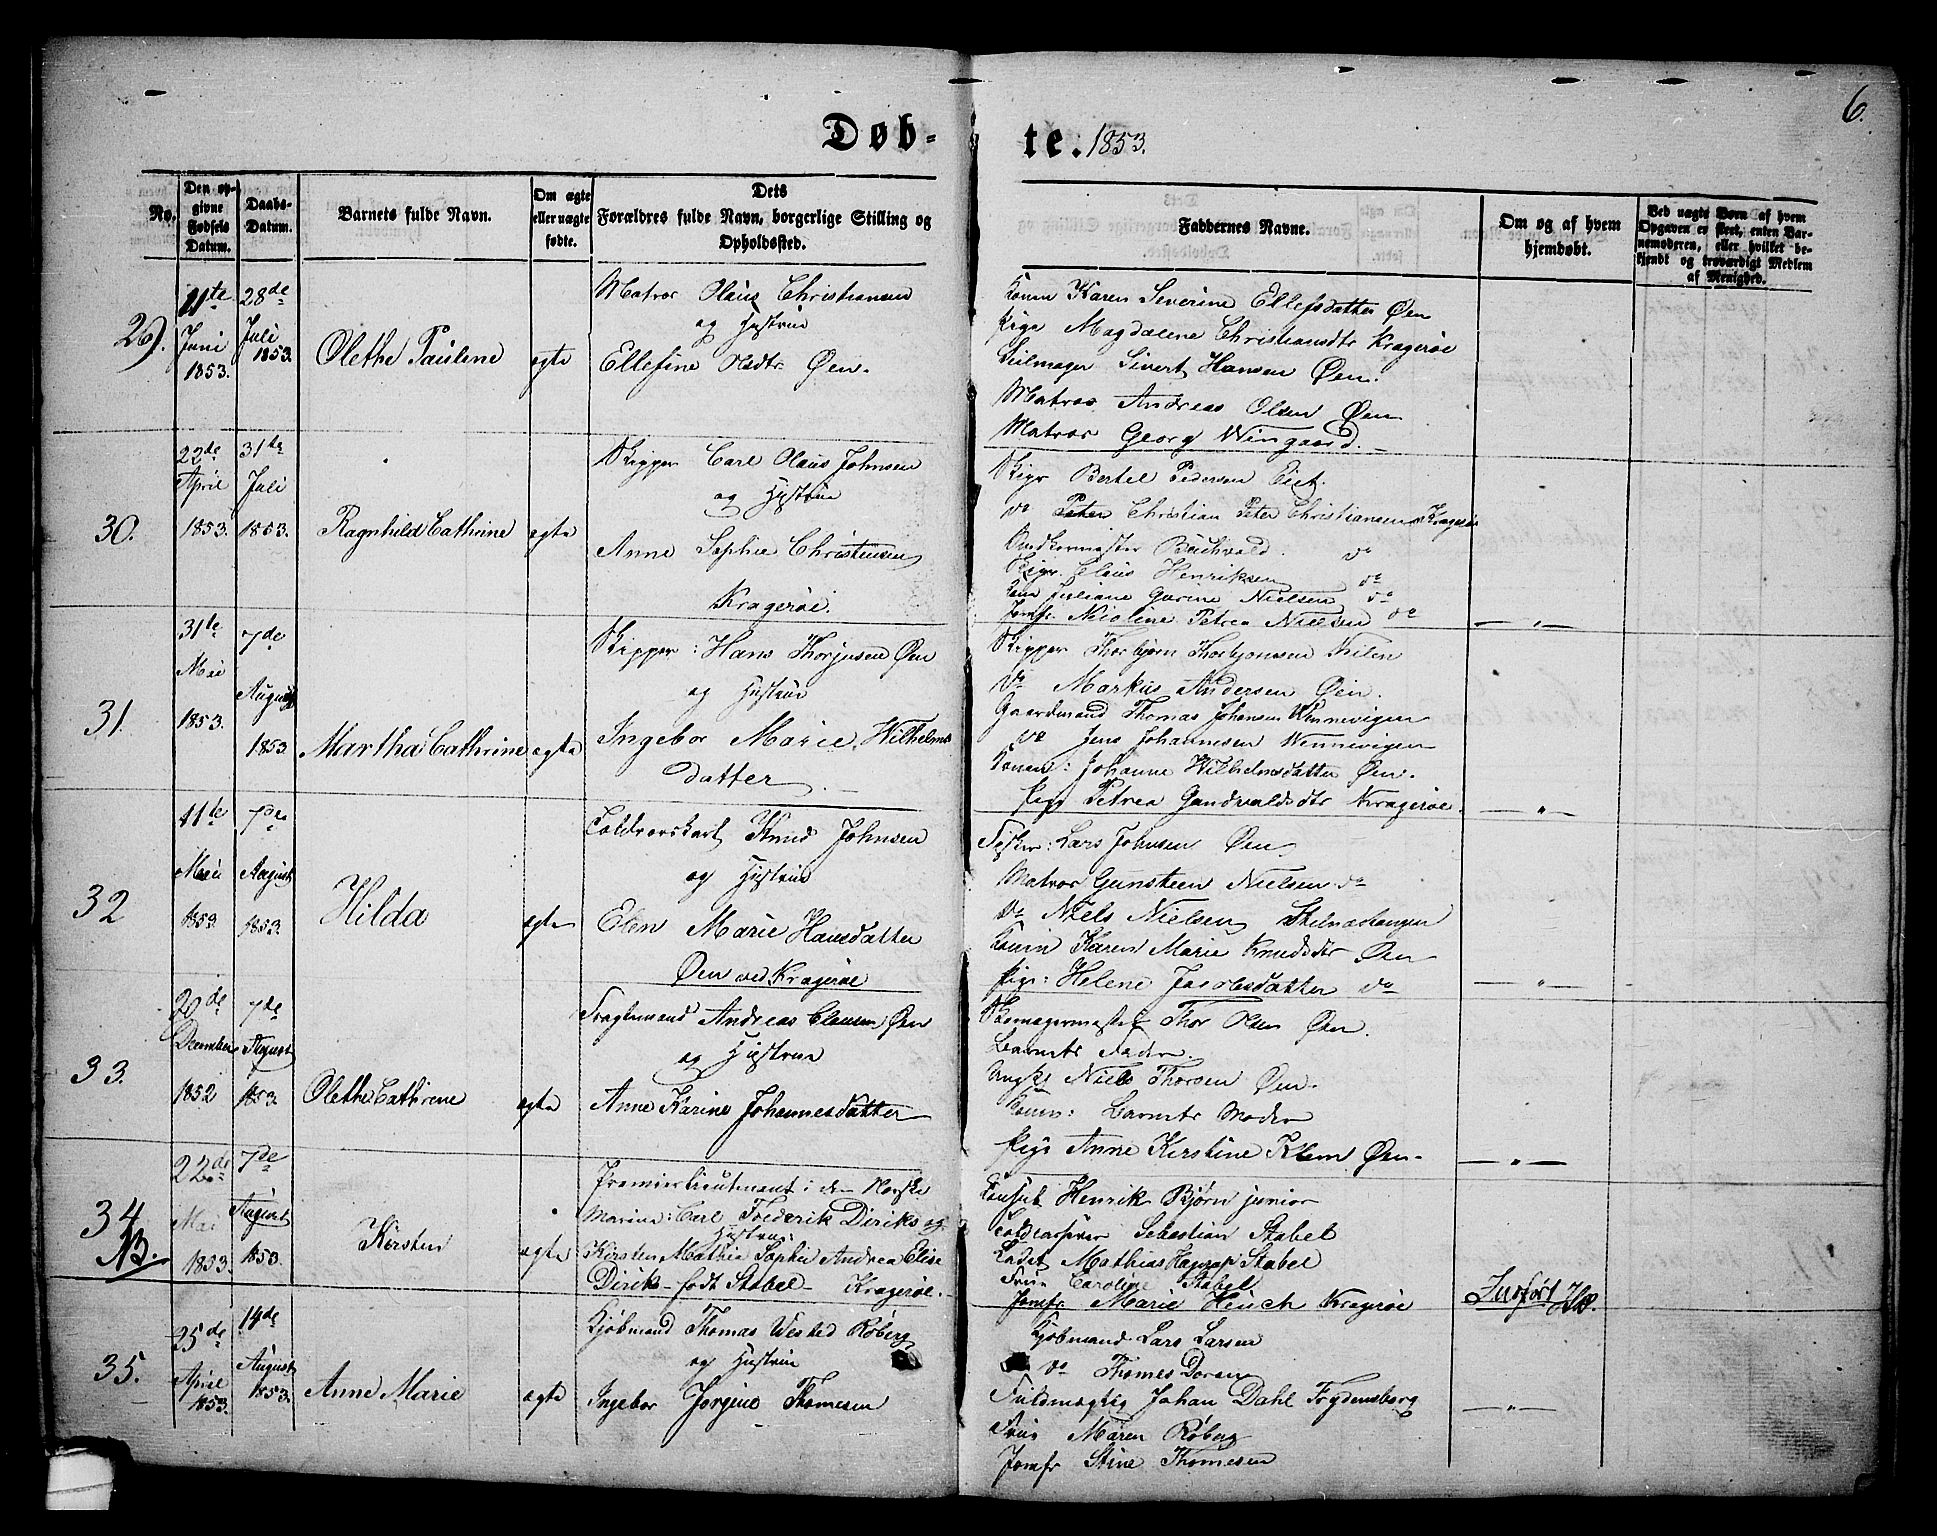 6.
Døb-
te. 1853.
No.
Den op-
givne
Fødsels
Datum.
Daabs-
Datum.
Barnets fulde Navn.
Om ægte
eller uægte
fødte.
Dets
Forældres fulde Navn, borgerlige Stilling og
Opholdssted.
Faddernes Navne.
Om og af hvem
hjemdøbt.
Ved uægte Børn af hvem
Opgaven er skeet, enten Bar-
nemoderen, eller hvilket be-
kjendt og troværdigt Medlem
af Menighed.
29.
11te
Juni
1853.
28de
Juli
1853.
Olethe Pauline
egte
Matros Olaus Christiansen
og Hustrue
Ellefine Olsdtr Øen.
Konen Karen Severine Ellefsdatter Øen
Pige Magdalene Christiansdtr Kragerøe
Seilmager Sivert Hansen Øen.
Matros Andreas Olsen Øen
Matros Georg Wingaard.
30.
22de
April
1853.
31te
Juli
1853.
Ragnhild Cathrine
egte
Skipper Carl Olaus Johnsen
og Hustrue
Anne Sophie Christensen
Kragerøe.
Skipr Bertel Pedersen Eiet.
do Peter Christian Peter Christiansen Kragerøe
Buchvald. do
Skipr. Claus Henriksen do
Juliane Gurine Nielsen do
Jomfr Nicoline Petrea Nielsen do
— " —
31.
31te
Mai
1853.
7de
August
1853.
Martha Cathrine
egte
Skipper: Hans Thorjusen Øen
og Hustrue
Ingebor Marie Wilhelms
datter
Skipper Thorbjørn Thorbjornsen Kilen
do Markus Andersen Øen.
Gaardmand Thomas Johansen Wennevigen
do Jens Johannesen Wennevigen
Konen: Johanne Wilhelmsdatter Øen.
Pige Petrea Gundvaldsdtr Kragerøe.
— " —
32
11te
Mai
1853.
7de
August
1853.
Hilda
egte
Toldroerskarl Knud Johnsen
og Hustrue
Elen Marie Hansdatter
Øen ved Kragerøe
Fisker: Lars Johnsen Øen
Matros Gunsteen Nielsen do
do Niels Nielsen
Konen Karen Marie Knudsdtr Øen
Pige: Helene Jacobsdatter do
— " —
33.
20de
December
1852
7de
August
1853.
Olethe Cathrine
egte
Fragtemand Andreas Clausen Øen
og Hustrue
Anne Karine Johannesdatter
Skomagermester Thor Olsen Øen.
Barnets Fader.
Ungk: Niels Thorsen Øen.
Konen: Barnets Moder
Pige Anne Kirstine Klem Øen.
— " —
34
NB.
22de
Mai
1853.
7de
August
1853.
Kirsten
egte
Premierlieutenant i den Norske
Marine: Carl Frederik Diriks og
Hustrue:
Kirsten Mathia Sophie Andrea Elise
Diriks født Stabel Kragerøe.
Consul Henrik Bjørn junior
Toldcasserer Sebastian Stabel
Cadet Mathias Hagerup Stabel
Frue Caroline Stabel
Jomfr Marie Heuch Kragerøe
35.
25de
April
1853.
14de
August
1853.
Anne Marie
egte
Kjøbmand Thomas Wested Røberg
og Hustrue
Ingebor Jorgine Thomesen
Kjøbmand Lars Larsen
do Thomes Doresen
Fuldmægtig Johan Dahl Frydensborg
Frue Maren Røberg
Jomfr Stine Thomesen
— " —